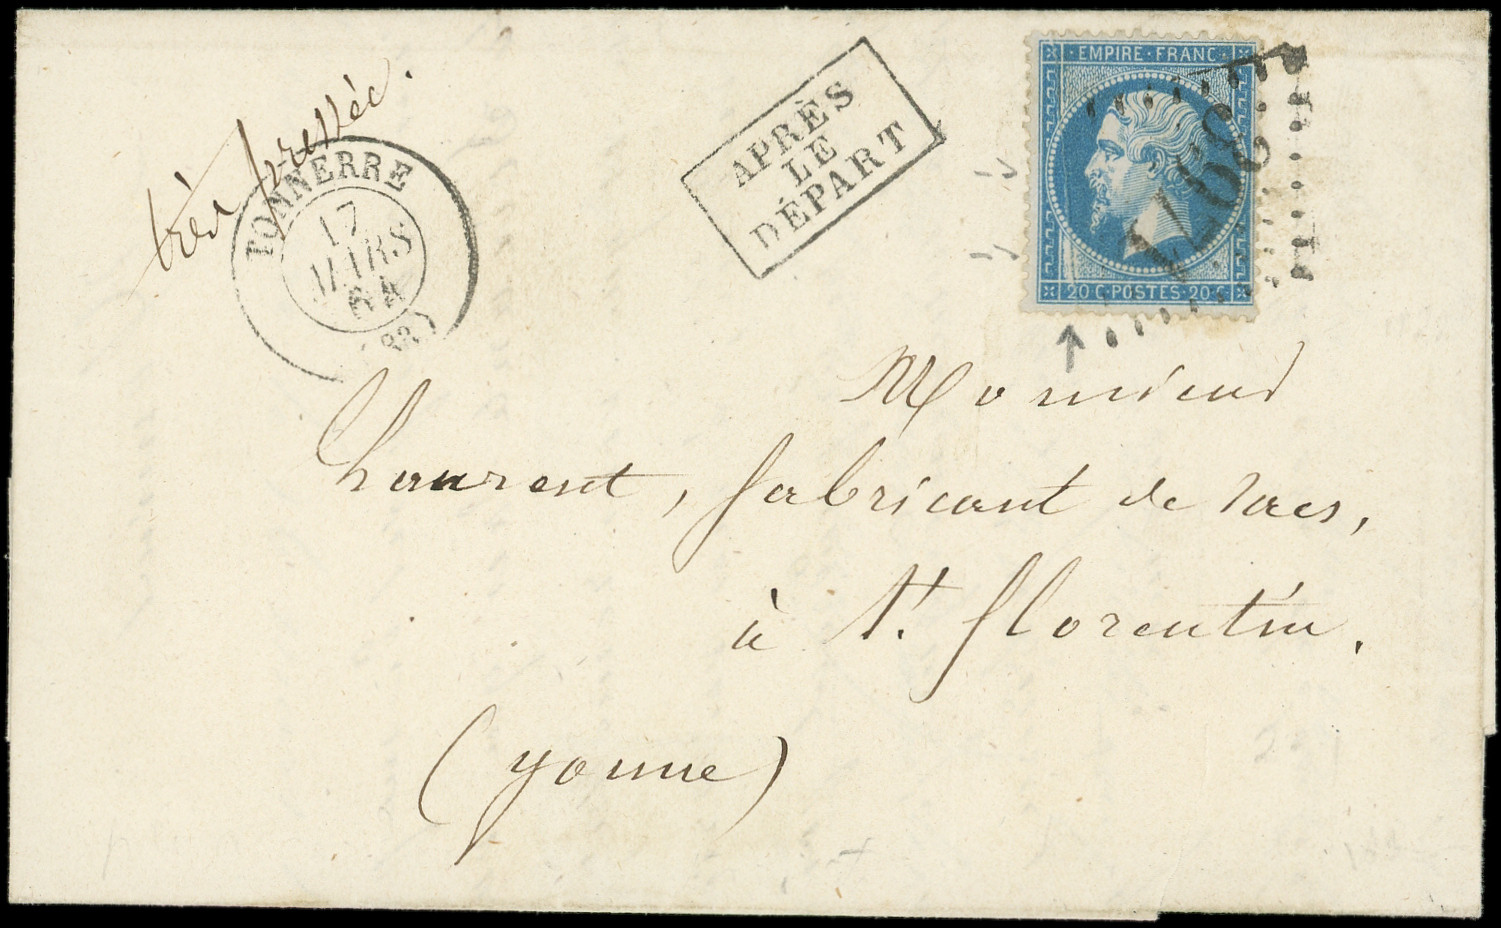 très pressée.
TONNERRE
17
MARS
64
(82)
APRÈS
LE
DÉPART
EMPIRE · FRANC ·
3971
20 C · POSTES · 20 C
Monsieur
Laurent, fabricant de sacs,
à St florentin.
(yonne)